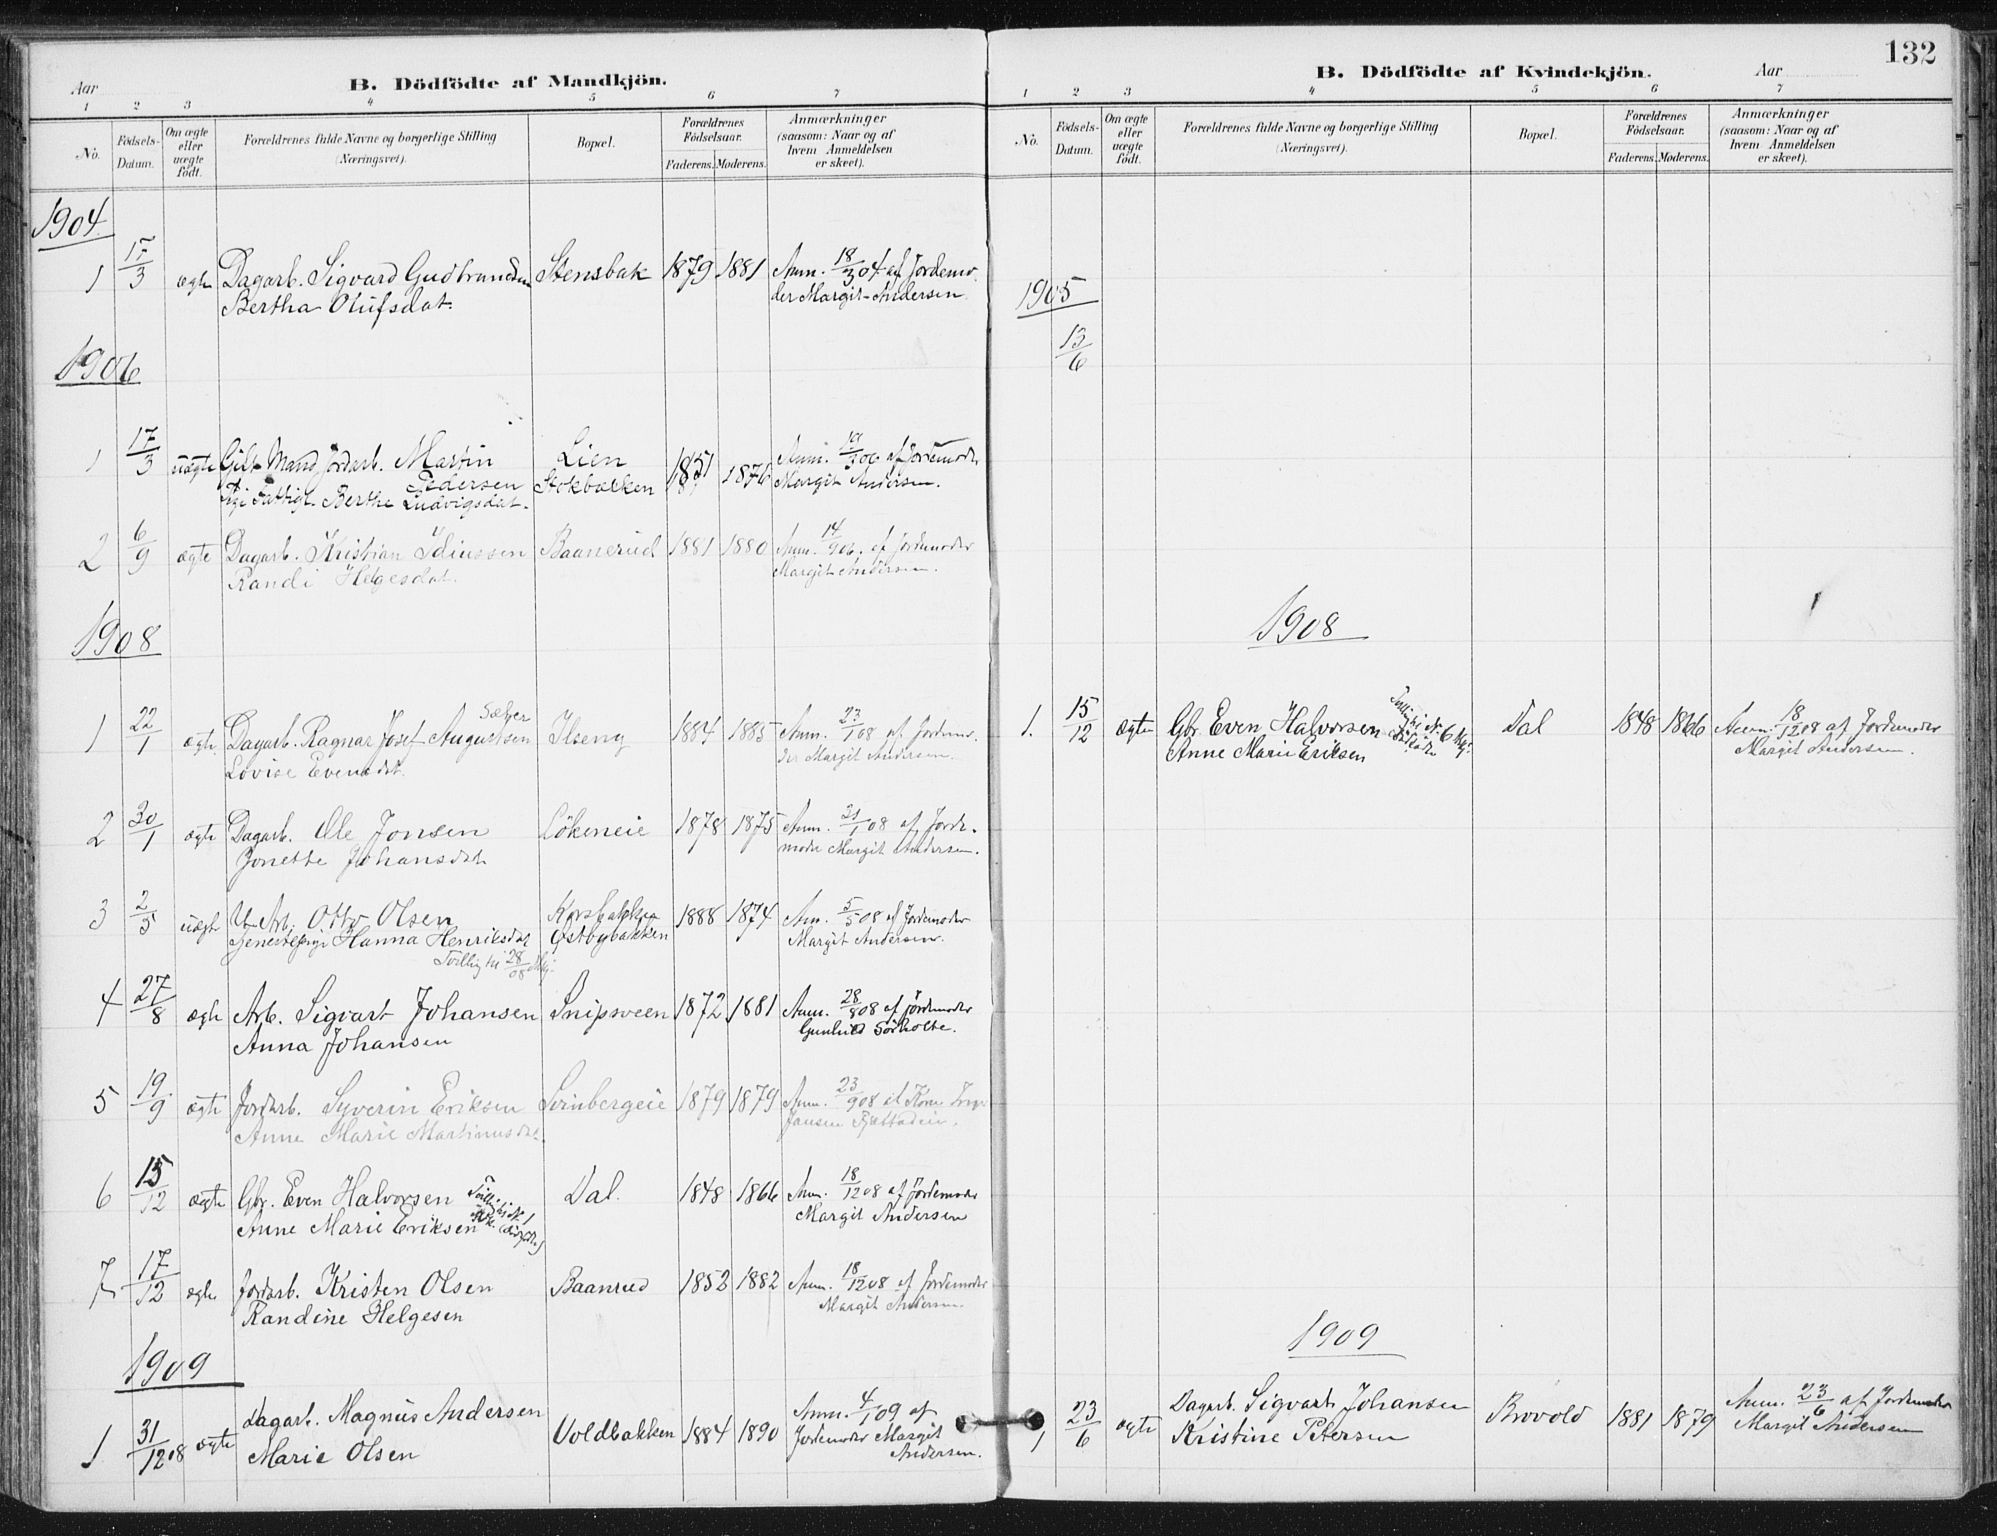 B. Dödfödte af Mandkjön.
Aar
1 2 3 4 5 6 7
No.
Födsels-Datum.
Om ægte eller uægte födt.
Forældrenes fulde Navne og borgerlige Stilling (Næringsvei).
Bopæl.
Forældrenes Födselsaar.
Faderens. Moderens.
Anmærkninger (saasom: Naar og af hvem Anmeldelsen er skeet).
1904
1 17/3 ægte Dagarb. Sigvard Gudbrandsen Stensbak 1879 1881 Anm. 18/3 04 af Jordemo-
Bertha Olufsdat. der Margit Andersen
1906
1 17/3 uægte Gift Mand Jordarb. Martin Lien 1851 1876 Anm. 19/3 06 af Jordemoder
Pedersen Stokbækken Margit Andersen.
Pige Berthe Ludvigsdat.
2 6/9 ægte Dagarb. Kristian Idiussen Baanerud 1881 1880 Anm. 14/9 06. af Jordemoder
Randi Helgesdat. Margit Andersen.
1908
1 22/1 ægte Dagarb. Ragnar Josef Augustsen Ilseng 1884 1885 Anm. 23/1 08 af Jordemo-
Lovise Evensdat. der Margit Andersen.
2 30/1 ægte Dagarb. Ole Jonsen Lökeneie 1878 1875 Anm. 31/1 08 af Jorde-
Jonette Johansdat moder Margit Andersen.
3 2/5 uægte U. Arb. Otto Olsen Korsbakken 1888 1874 Anm. 5/5 08 af Jordemoder
Tjenestepige Hanna Henriksdat Østbybakken Margit Andersen.
Tvilling til 28/8 08
4 27/8 ægte Arb. Sigvart Johansen Snipsveen 1872 1881 Anm. 28/8 08 af Jordemoder
Anna Johansen Gunhild Sørholte.
5 19/9 ægte Jordarb. Syverin Eriksen Svinbergeie 1879 1879 Anm. 23/9 08
Anne Marie Martinusdat. Jansen
6 15/12 ægte Gbr. Even Halvorsen Tvilling til No. 1 Dal. 1848 1866 Anm. 18/12 08 af Jordemoder
Anne Marie Eriksen Margit Andersen
7 17/12 ægte Jordarb. Kristen Olsen Baanrud 1852 1882 Anm. 18/12 08 af Jordemoder
Randine Helgesen Margit Andersen.
1909
1 31/12 08 ægte Dagarb. Magnus Andersen Voldbakken 1884 1890 Anm. 4/1 09 af
Marie Olsen Jordemoder Margit
Andersen.
132
B. Dödfödte af Kvindekjön.
Aar
1 2 3 4 5 6 7
No.
Födsels-Datum.
Om ægte eller uægte födt.
Forældrenes fulde Navne og borgerlige Stilling (Næringsvei).
Bopæl.
Forældrenes Födselsaar.
Faderens. Moderens.
Anmærkninger (saasom: Naar og af hvem Anmeldelsen er skeet).
1905
13/6
1908
1. 15/12 ægte Gbr. Even Halvorsen Tvilling til No. 6 Dal 1848 1866 Anm. 18/12 08 af Jordemoder
Anne Marie Eriksen Margit Andersen.
1909
1 23/6 ægte Dagarb. Sigvart Johansen Brovold 1881 1879 Anm. 23/6 af Jordemoder
Kristine Petersen Margit Andersen